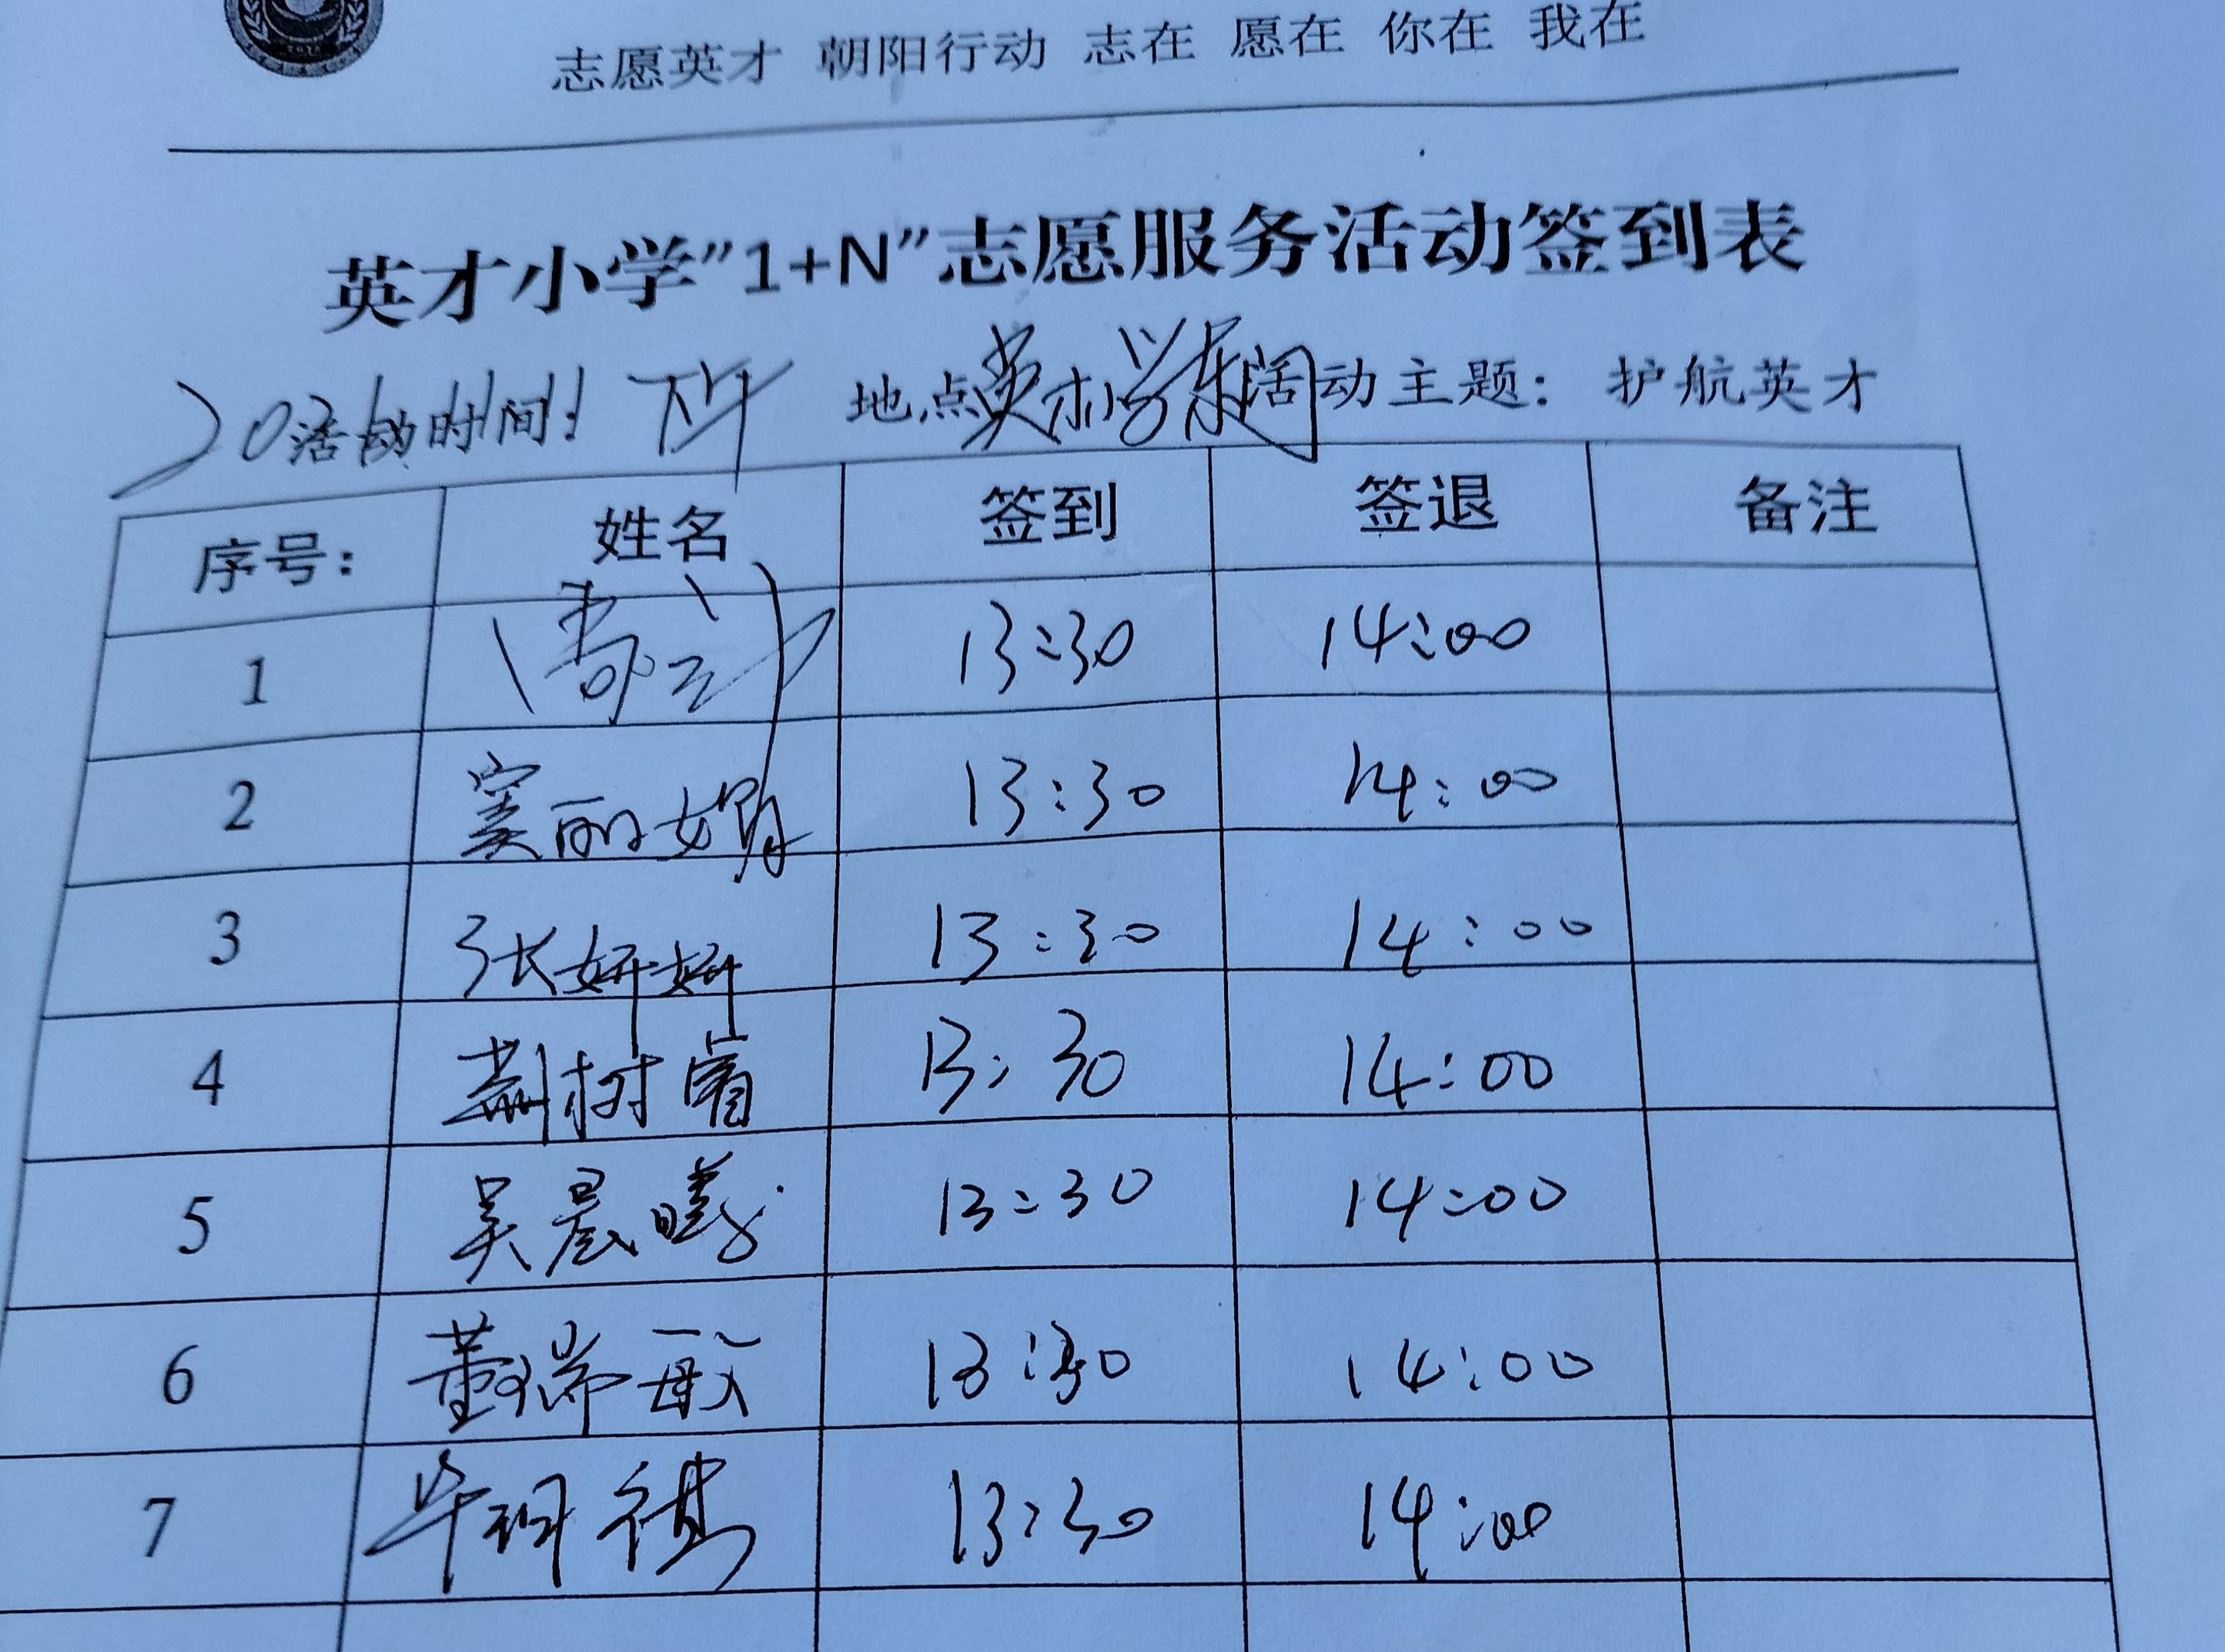 志愿英才 朝阳行动 志在 愿在 你在 我在
英才小学"1+N"志愿服务活动签到表
活动时间: 下午 地点 活动主题: 护航英才
序号: 姓名 签到 签退 备注
1 13:30 14:00
2 窦丽娟 13:30 14:00
3 张妍妍 13:30 14:00
4 荆树睿 13:30 14:00
5 吴晨曦 13:30 14:00
6 董瑞 13:30 14:00
7 毕玥祺 13:30 14:00